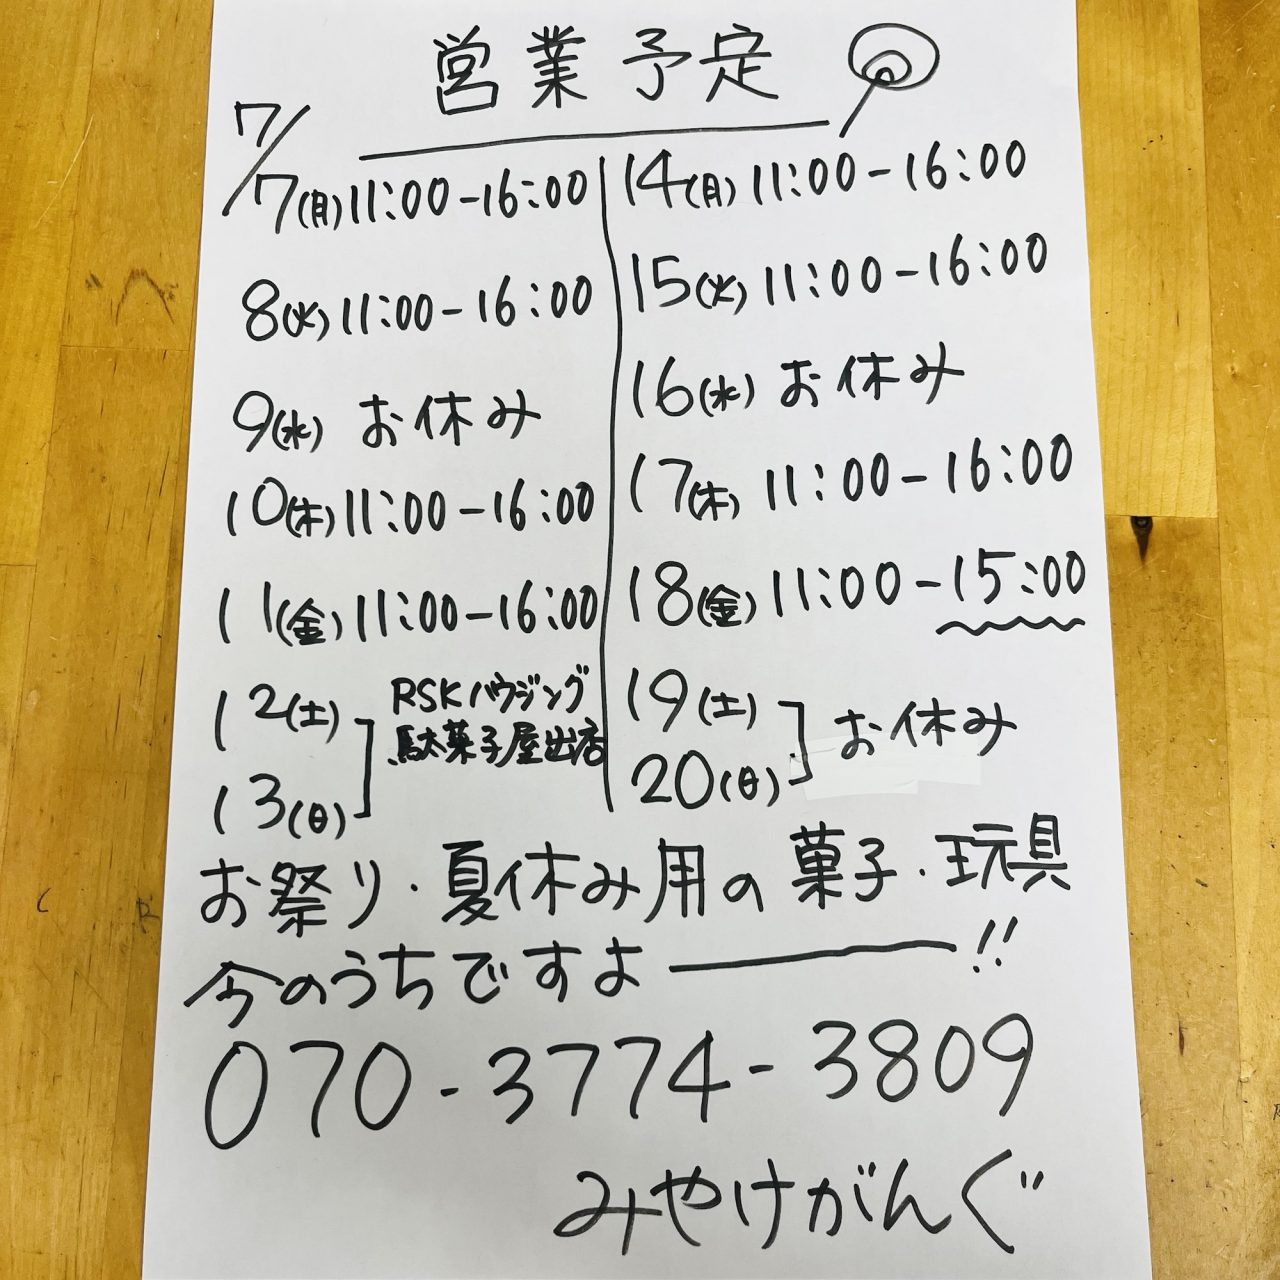 営業予定
7/7(月)11:00-16:00
8(火)11:00-16:00
9(水) お休み
10(木)11:00-16:00
11(金)11:00-16:00
12(土)
13(日)
RSKハウジング
駄菓子屋出店
14(月)11:00-16:00
15(火)11:00-16:00
16(水)お休み
17(木)11:00-16:00
18(金)11:00-15:00
19(土)
20(日)
お休み
お祭り・夏休み用の菓子・玩具
今のうちですよ――!!
070-3774-3809
みやけがんぐ